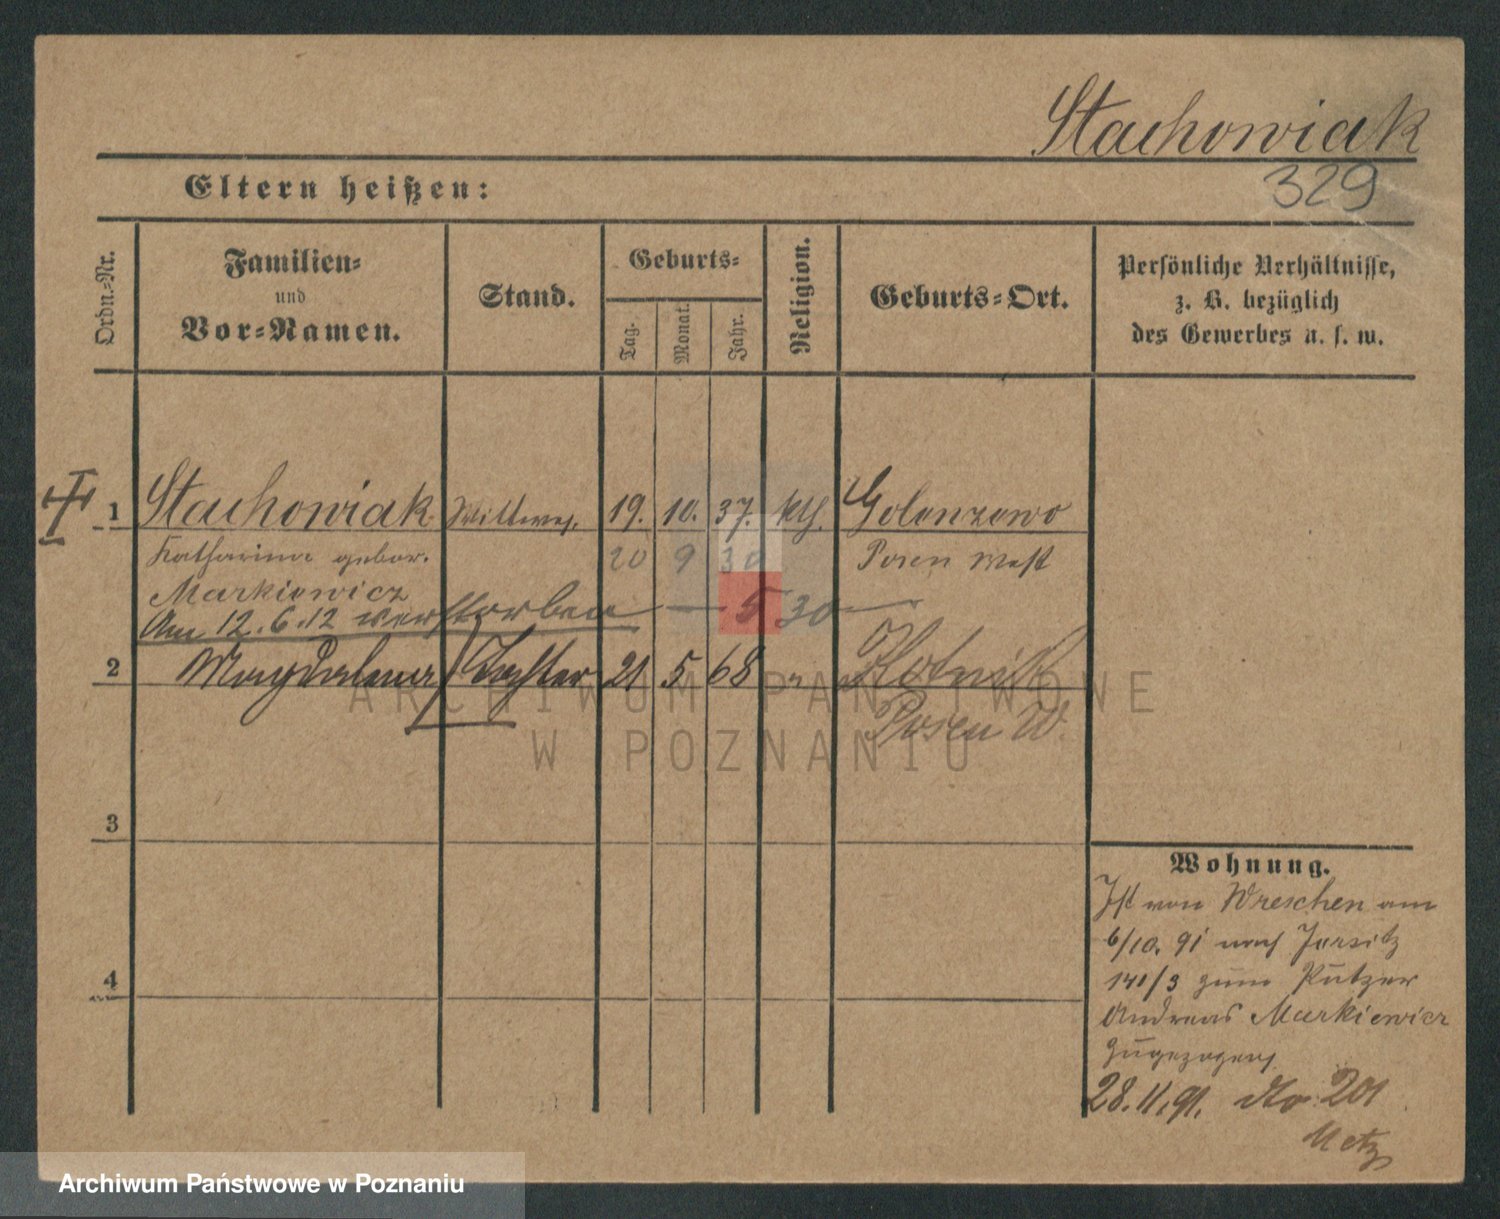 Stachowiak
329
Eltern heißen:
Ordn.-Nr.
Familien-
und
Vor-Namen.
Stand.
Geburts-
Tag.
Monat.
Jahr.
Religion.
Geburts-Ort.
Persönliche Verhältnisse,
z. B. bezüglich
des Gewerbes u. s. w.
1 Stachowiak Wittwe, 19. 10. 37. kth. Golenzewo
Katharina gebor. 20 9 30 Posen West
Markiewicz
Am 12.6.12 verstorben — 5 30 —
2 Magdalena Tochter 21 5 68 " Kotnik
Posen W.
3
4
Wohnung.
Ist von Wreschen am
6/10. 91 nach Jersitz
141/3 zum Putzer
Andreas Markiewicz
zugezogen
28.11.91. dto 201
Metz
ARCHIWUM PAŃSTWOWE
W POZNANIU
Archiwum Państwowe w Poznaniu